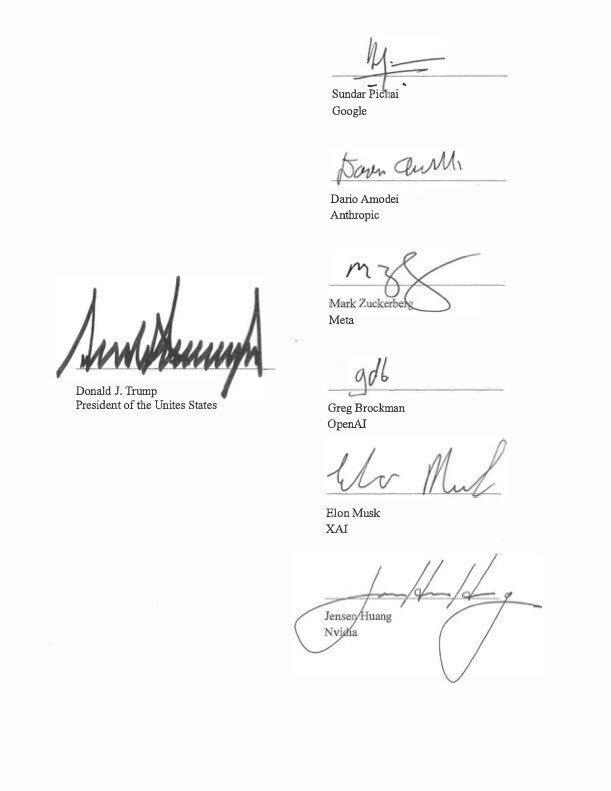 Sundar Pichai
Google
Dario Amodei
Anthropic
mzg
Mark Zuckerberg
Meta
Donald J. Trump
President of the Unites States
gdb
Greg Brockman
OpenAI
Elon Musk
Elon Musk
XAI
Jensen Huang
Nvidia